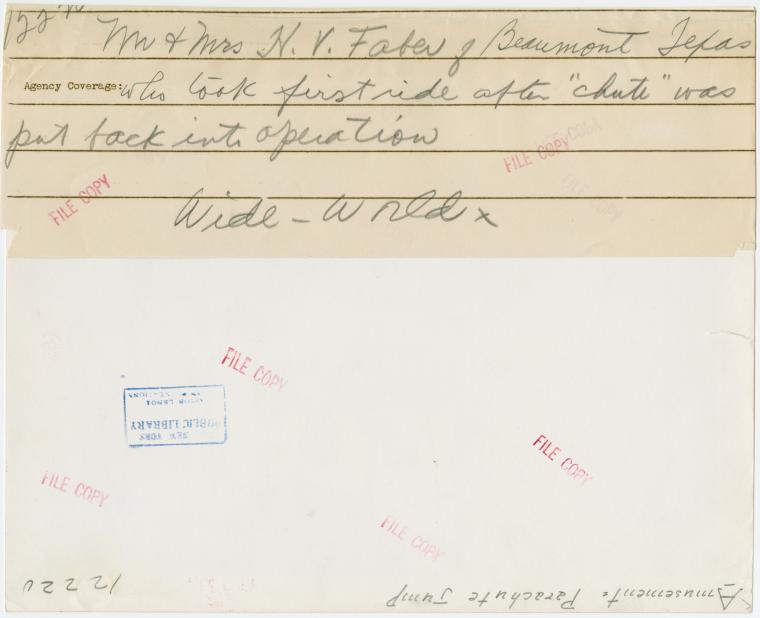 Mr & Mrs H. V. Faber of Beaumont Texas
Agency Coverage: who took first ride after "chute" was
put back into operation
FILE COPY
FILE COPY
Wide-World x
FILE COPY
NEW YORK
PUBLIC LIBRARY
ASTOR LENOX
FILE COPY
FILE COPY
FILE COPY
Amusement: Parachute Jump
1222